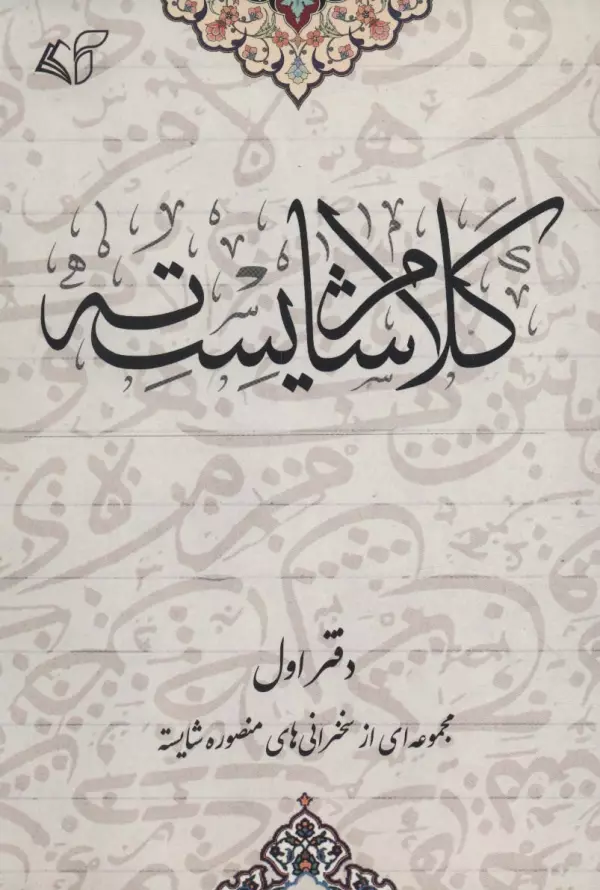 کلام شایسته
دفتر اول
مجموعه‌ای از سخنرانی‌های منصوره شایسته